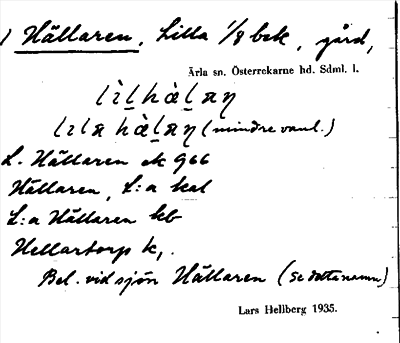 1 Hållaren, Lilla 1/8 bek, gård,
Ärla sn. Österrekarne hd. Sdml. l.
(mindre vanl.)
L. Hållaren ek 966
Hållaren, L:a kal
L:a Hållaren kb
Hellartorp k,.
Bel. vid sjön Hållaren (se detta namn)
Lars Hellberg 1935.